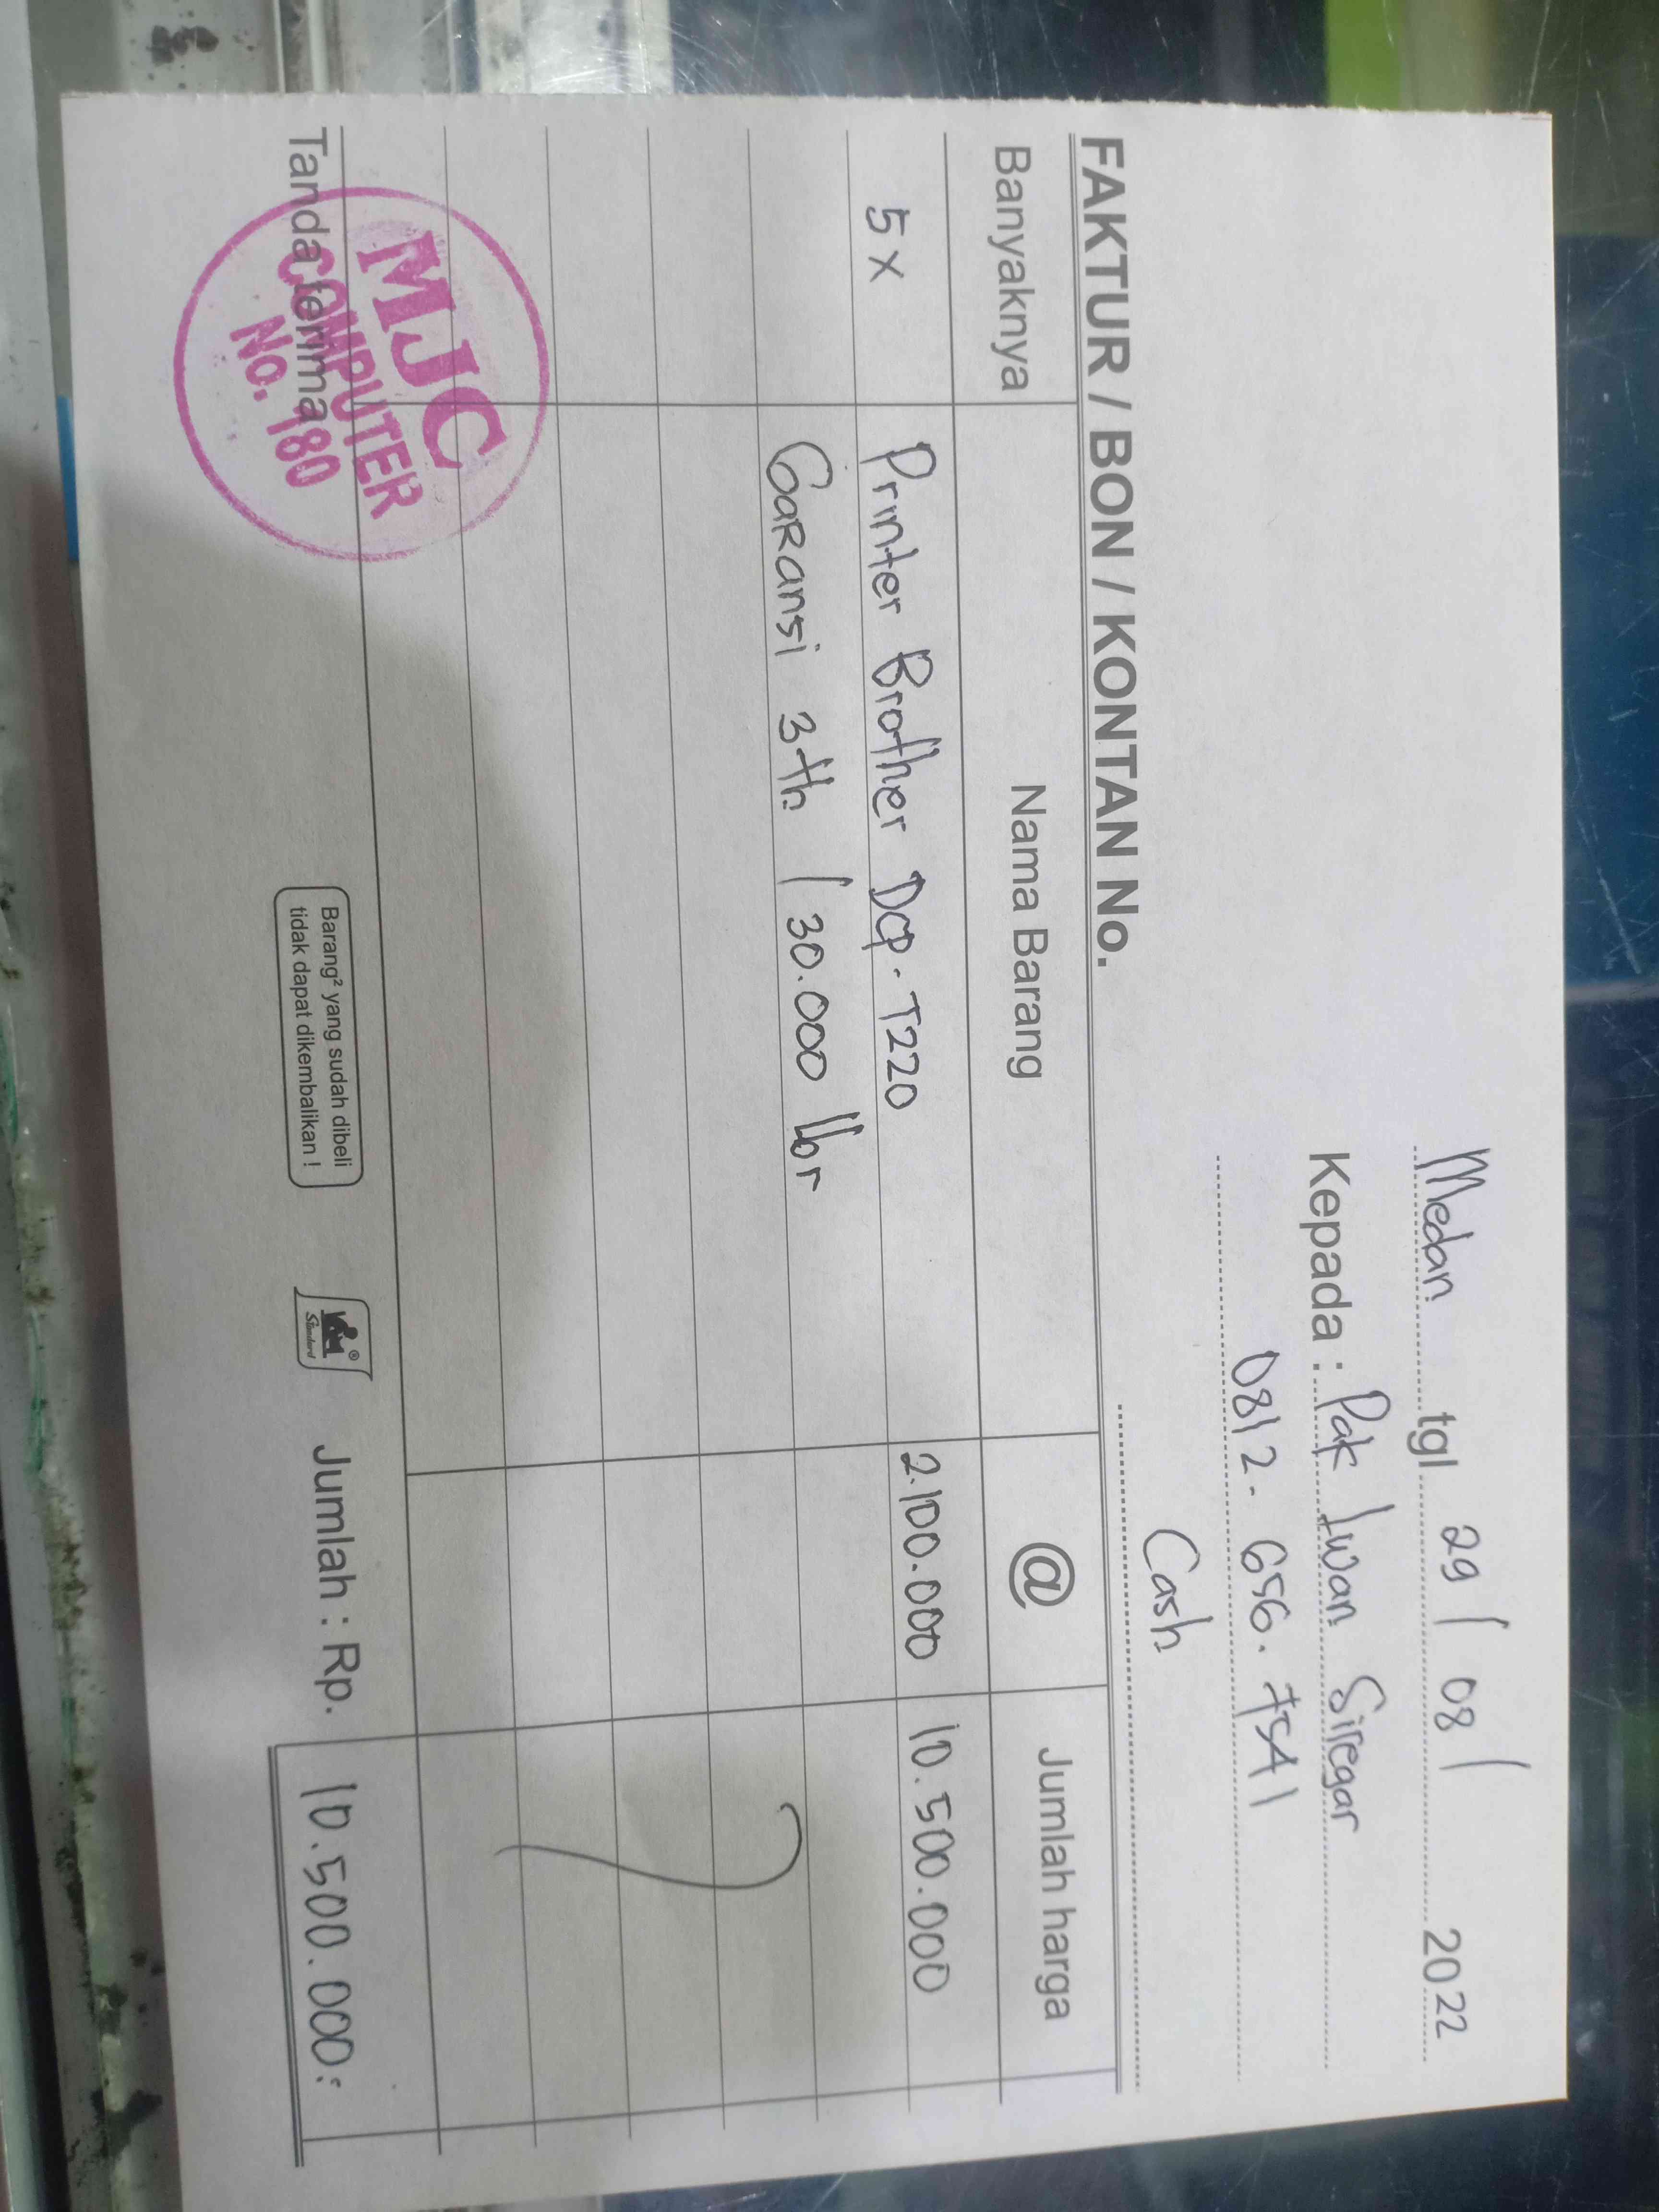 Medan tgl. 29 / 08 / 2022
Kepada : Pak Iwan Siregar
0812 - 656 . 7541
Cash
FAKTUR / BON / KONTAN No.
Banyaknya Nama Barang @ Jumlah harga
5 x Printer Brother DCP - T220 2.100.000 10.500.000
Garansi 3 th / 30.000 lbr
Tanda terima
MJC
COMPUTER
No. 180
Barang² yang sudah dibeli
tidak dapat dikembalikan !
Standard
Jumlah : Rp. 10.500.000: